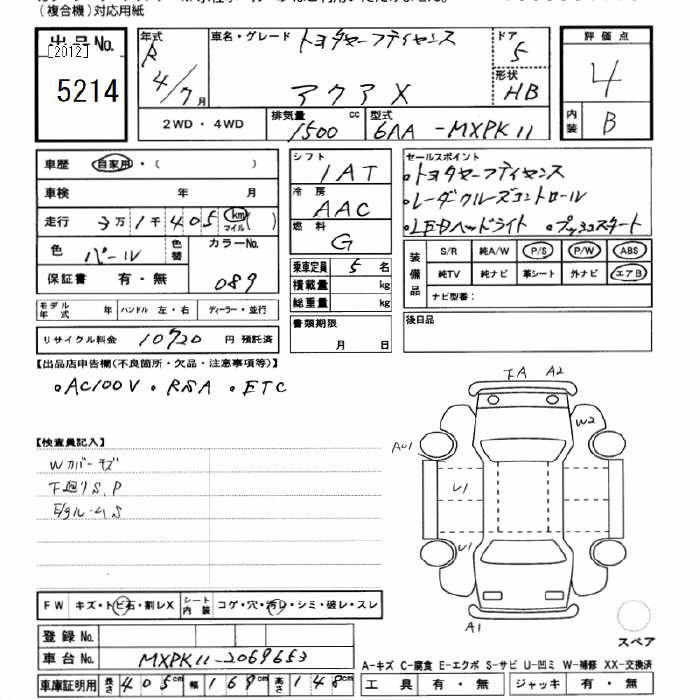 (複合機)対応用紙
出品No.
[2012]
5214
年式
R
4/7月
車名・グレード
トヨタセーフティセンス
アクア X
ドア
5
形状
HB
評価点
4
内装
B
2WD・4WD
排気量
1500cc
型式
6AA-MXPK11
車歴 自家用・( )
車検 年 月
走行 3万1千405 km マイル( )
色 パール
色替
カラーNo.
089
保証書 有・無
モデル年式 年 ハンドル 左・右 ディーラー・並行
リサイクル料金 10920 円 預託済
シフト
IAT
冷房
AAC
燃料
G
乗車定員 5 名
積載量 kg
総重量 kg
書類期限
月 日
セールスポイント
・トヨタセーフティセンス
・レーダクルーズコントロール
・LEDヘッドライト ・プッシュスタート
装備品
S/R 純A/W P/S P/W ABS
純TV 純ナビ 革シート 外ナビ エアB
ナビ型番:
後日品
【出品店申告欄(不良箇所・欠品・注意事項等)】
・AC100V ・RSA ・ETC
【検査員記入】
Wカバーキズ
下廻りS.P
E/gルームS
FA A2
W2
AU1
U1
U1
A1
スペア
FW キズ・トビ石・割レX
シート内装 コゲ・穴・汚レ・シミ・破レ・スレ
登録No.
車台No. MXPK11-2069653
車庫証明用 長さ 405cm 幅 169cm 高さ 148cm
A-キズ C-腐食 E-エクボ S-サビ U-凹ミ W-補修 XX-交換済
工具 有・無 ジャッキ 有・無